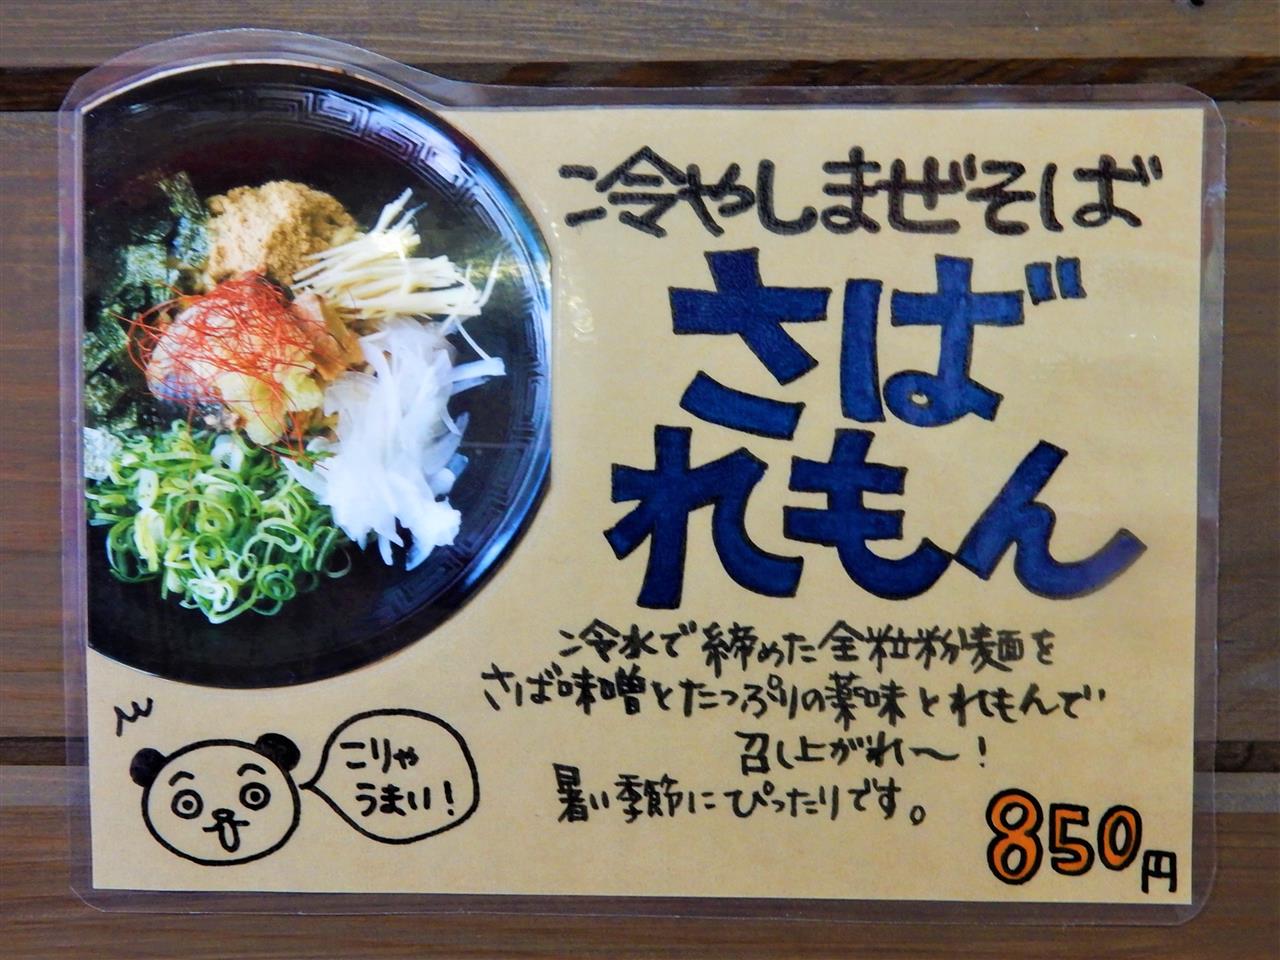 冷やしまぜそば
さば
れもん
冷水で締めた全粒粉麺を
さば味噌とたっぷりの薬味とれもんで
召し上がれ〜！
暑い季節にぴったりです。
850円
こりゃ
うまい！